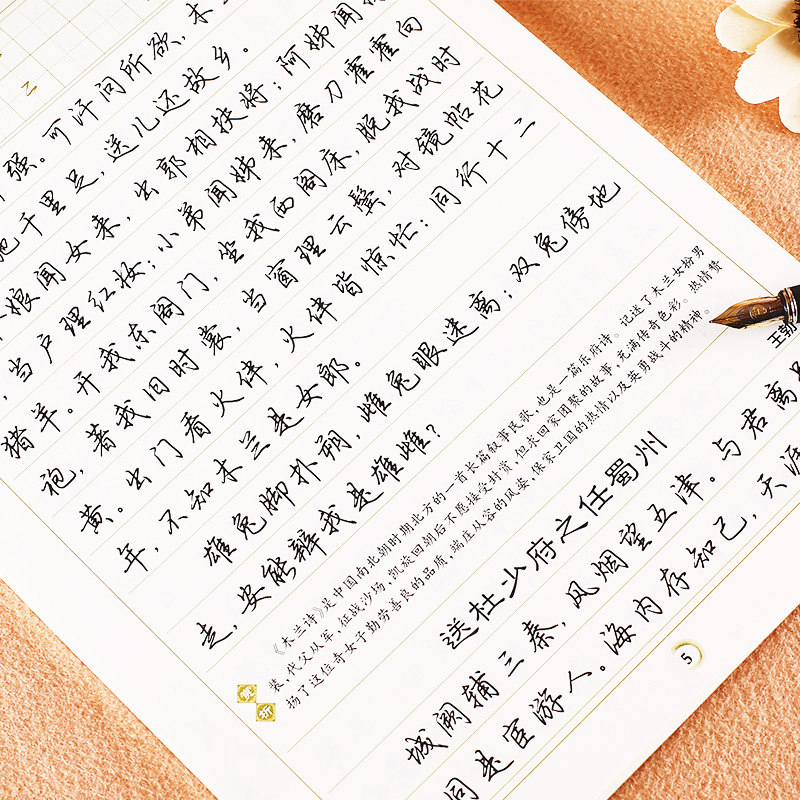 强。可汗问所欲,木
驰千里足,送儿还故乡。
娘闻女来,出郭相扶将;阿姊闻
,当户理红妆;小弟闻姊来,磨刀霍霍向
猪羊。开我东阁门,坐我西阁床,脱我战时
袍,著我旧时裳,当窗理云鬓,对镜帖花
黄。出门看火伴,火伴皆惊忙:同行十二
年,不知木兰是女郎。
雄兔脚扑朔,雌兔眼迷离;双兔傍地
走,安能辨我是雄雌?
赏析
《木兰诗》是中国南北朝时期北方的一首长篇叙事民歌,也是一篇乐府诗。记述了木兰女扮男
装,代父从军,征战沙场,凯旋回朝后不愿接受封赏,但求回家团聚的故事,充满传奇色彩。热情赞
扬了这位奇女子勤劳善良的品质,保家卫国的热情以及英勇战斗的精神。端庄从容的风姿
送杜少府之任蜀州
王勃
城阙辅三秦,风烟望五津。与君离
同是宦游人。海内存知己,天涯
5